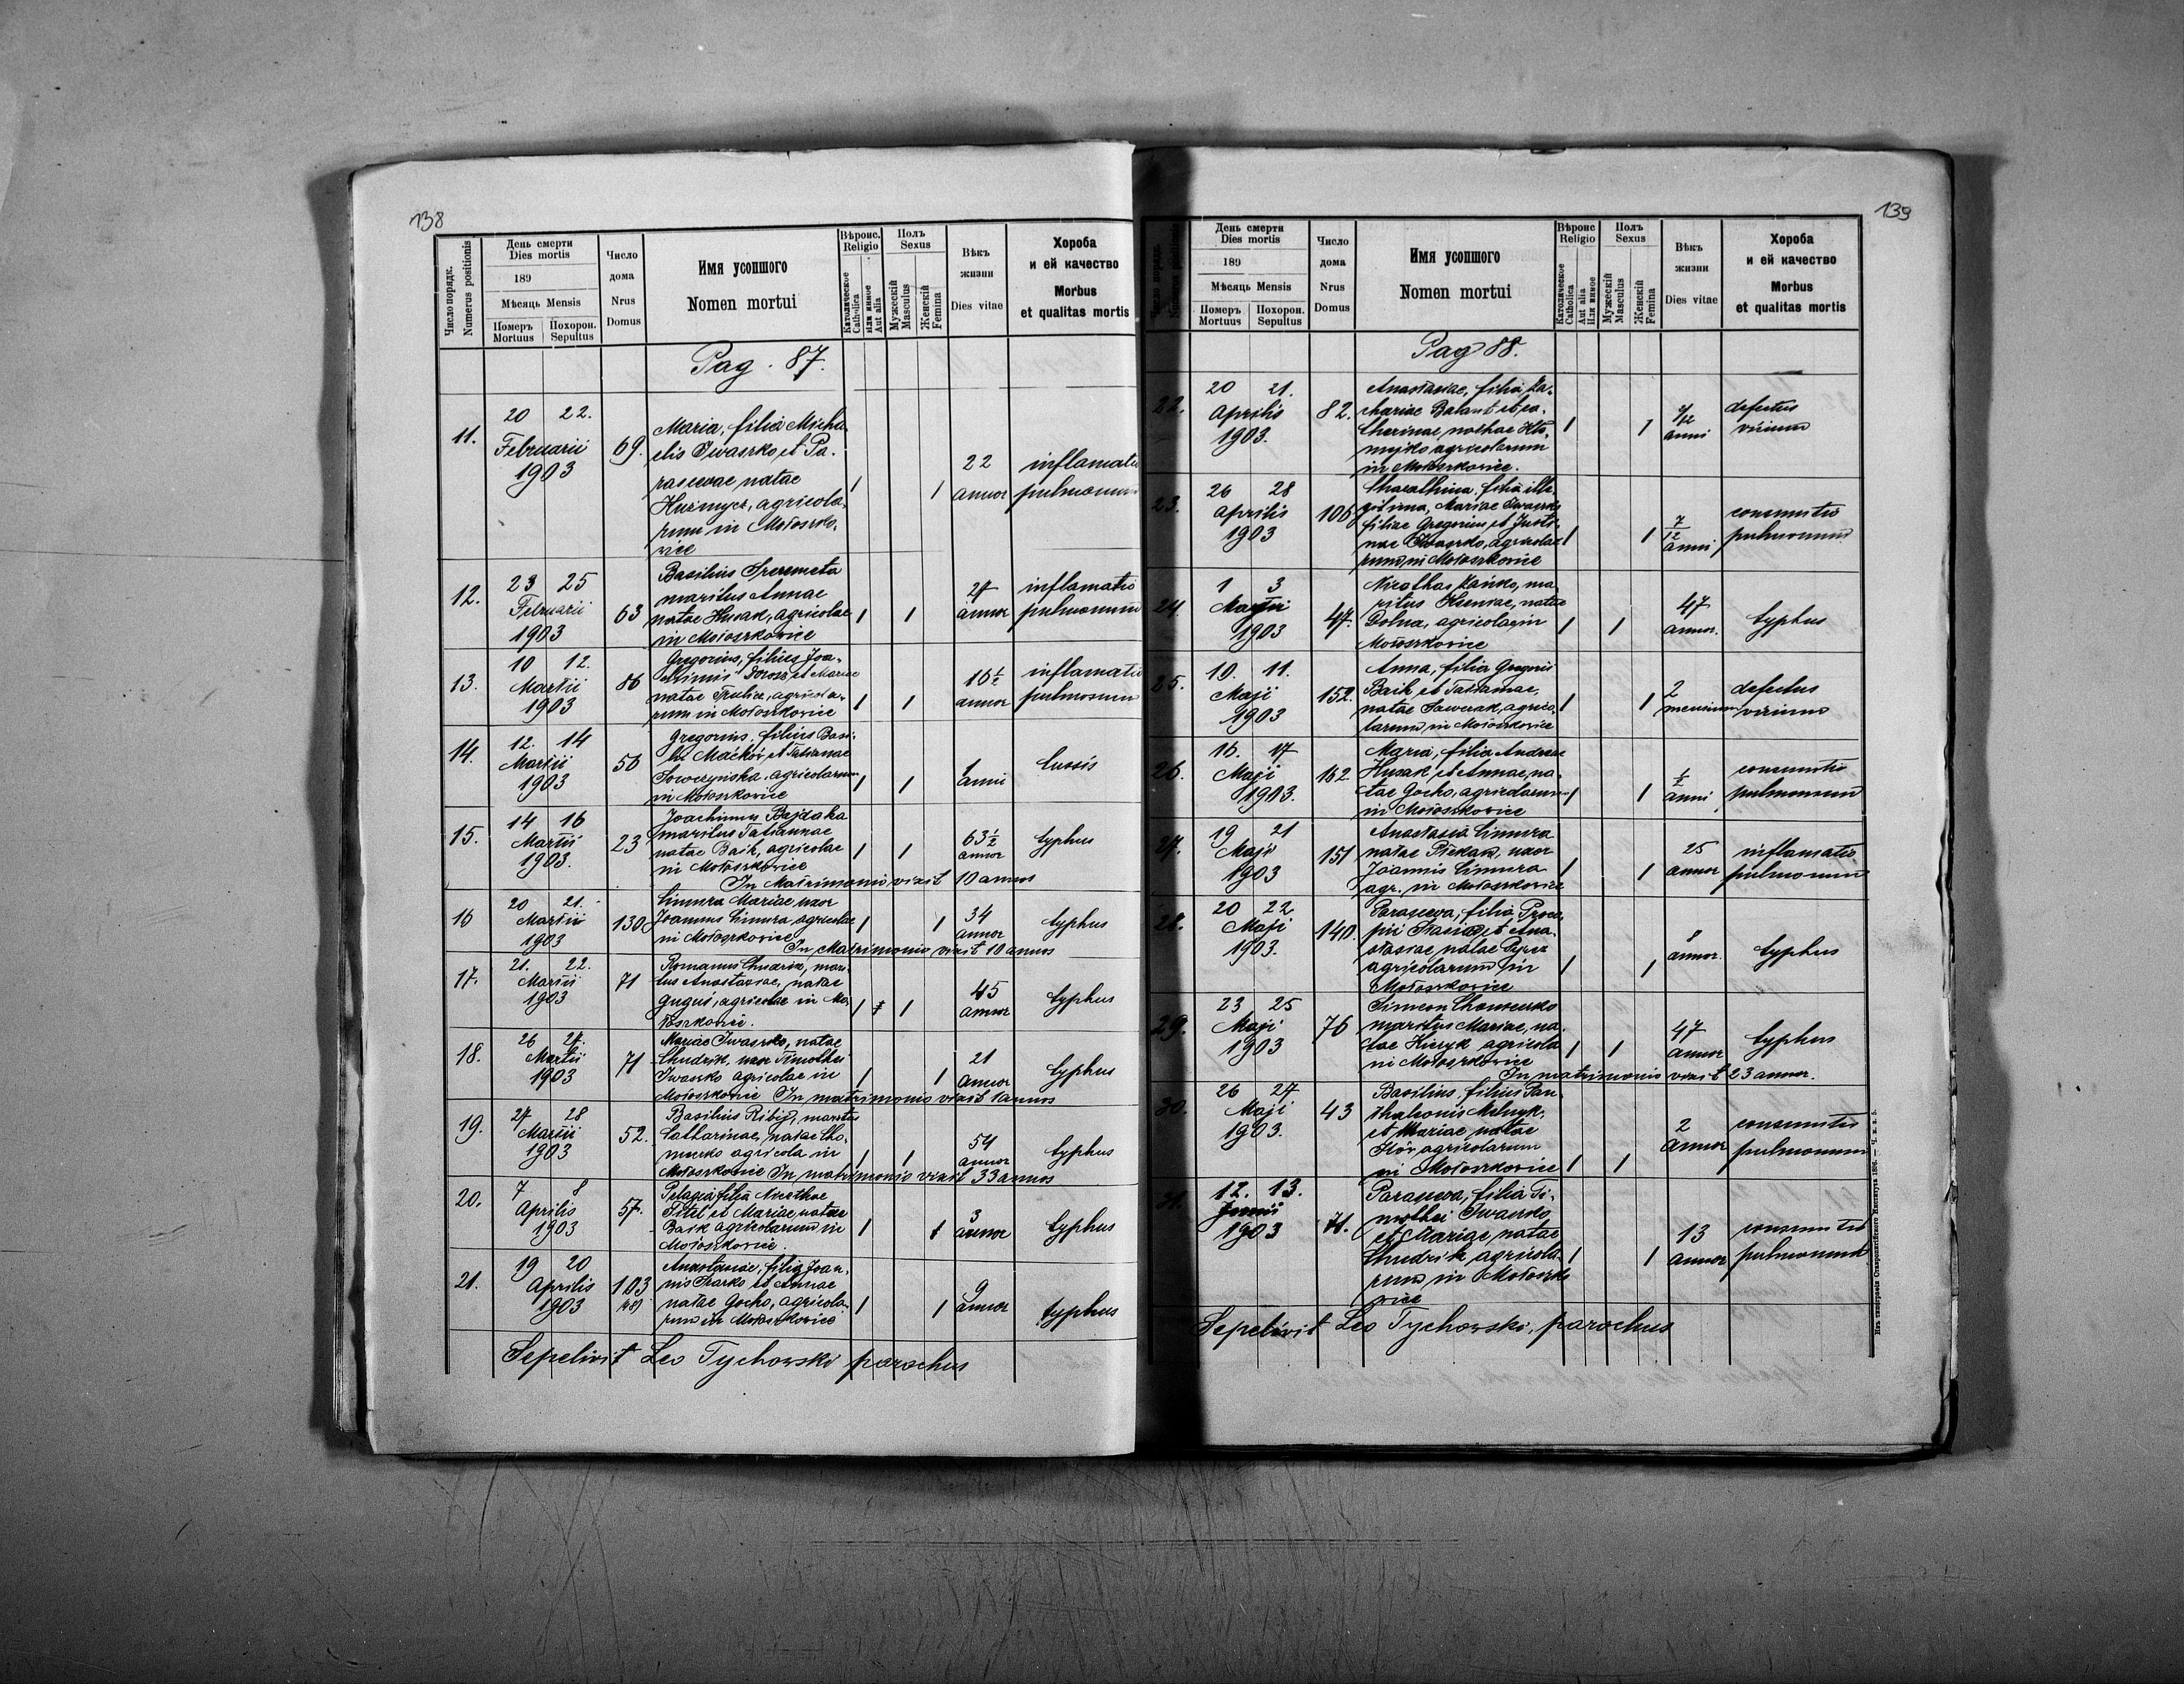 138
Число порядк.
Numerus positionis
День смерти
Dies mortis
189
Мѣсяць Mensis
Померъ
Mortuus
Похорон.
Sepultus
Число
дома
Nrus
Domus
Имя усопшого
Nomen mortui
Вѣроис.
Religio
Католическое
Catholica
или инное
Aut alia
Полъ
Sexus
Мужескій
Masculus
Женскій
Femina
Вѣкъ
жизни
Dies vitae
Хороба
и ей качество
Morbus
et qualitas mortis
Pag. 87.
11.
20 22.
Februarii
1903
69.
Maria, filia Micha-
elis Iwaszko et Pa-
rascevae natae
Kuźmycz, agricola-
rum in Mołoszko-
vice
22
annor
inflamatio
pulmonum
12.
23 25
Februarii
1903
63
Basilius Szeremeta
maritus Annae
natae Husak, agricolae
in Mołoszkovice
27
annor
inflamatio
pulmonum
13.
10 12.
Martii
1903
86
Gregorius, filius Joa-
chimis Dorosz et Mariae
natae agricola-
rum in Mołoszkovice
16½
annor
inflamatio
pulmonum
14.
12. 14
Martii
1903
56
Gregorius, filius Basi-
lii Maćków et Tatiannae
Sowczyńska, agricolarum
in Mołoszkovice
1
anni
tussis
15.
14 16
Martii
1903.
23
Joachimus Bajdaka
maritus Tatiannae
natae Baik, agricolae
in Mołoszkovice
In Matrimonio vixit 10 annos
63½
annor
typhus
16
20 21.
Martii
1903
130
Cimura Mariae uxor
Joannis Cimura agricolae
in Mołoszkovice
In Matrimonio vixit 10 annos
34
annor
typhus
17.
21. 22.
Martii
1903
71
Romanus Chudzik, mari-
tus Anastasiae, natae
Guguś, agricolae in Mo-
łoszkovice.
45
annor
typhus
18.
26 27.
Martii
1903
71
Mariae Iwaszko, natae
Chudzik, uxor Timothei
Iwaszko agricolae in
Mołoszkovice In matrimonio vixit 1 annos
21
annor
typhus
19.
27 28
Martii
1903
52.
Basilius Ribij, maritus
Catharinae, natae Cho-
murko agricola in
Mołoszkovice In matrimonio vixit 33 annos
54
annor
typhus
20.
7 8
Aprilis
1903
57.
Pelagia filia Nicethae
Titel et Mariae, natae
Baik agricolarum in
Mołoszkovice.
3
annor
typhus
21.
19 20
Aprilis
1903
103
Anastasiae, filia Joan-
nis et Annae
natae Gocko, agricola-
rum in Mołoszkovice
9
annor
typhus
Sepelivit Leo Tychowski parochus
139
День смерти
Dies mortis
189
Мѣсяць Mensis
Померъ
Mortuus
Похорон.
Sepultus
Число
дома
Nrus
Domus
Имя усопшого
Nomen mortui
Вѣроис
Religio
Католическое
Catholica
Aut alia
или инное
Полъ
Sexus
Мужескій
Masculus
Женскій
Femina
Вѣкъ
жизни
Dies vitae
Хороба
и ей качество
Morbus
et qualitas mortis
Pag 88.
22.
20 21.
Aprilis
1903.
82.
Anastasiae, filia Za-
chariae Balant et Ca-
therinae, natae
agricolarum
in Mołoszkovice.
/12
anni
defectus
virium
23.
26 28
Aprilis
1903
106
filia ille-
gitima, Mariae Iwaszko
filiae Gregorius et Justi-
nae Iwaszko, agricola-
rum, in Mołoszkovice
7/12
anni
consumtio
pulmonum
24.
1 3
1903
47.
Nicethas Kańko, ma-
ritus Kseniae, natae
Dolna, agricolae in
Mołoszkovice
47
annor.
typhus
25.
10. 11.
Maji
1903
152.
Anna, filia Gregorii
Baik et Tatianae,
natae Sawczak, agrico-
larum in Mołoszkovice
2
mensium
defectus
virium
26.
16. 17
Maji
1903.
162
Maria, filia Andreae
Husak et Annae, na-
tae Gocko, agricolarum
in Mołoszkovice
½
anni
consumtio
pulmonum
27.
19 21
Maji
1903
151
Anastasia Cimura
natae uxor
Joannis Cimura
agr. in Mołoszkovice
25
annor
inflamatio
pulmonum
28.
20 22
Maji
1903.
140.
Parasceva, filia Proco-
pii Stasiw et Ana-
stasiae, natae
agricolarum in
Mołoszkovice
8
annor.
typhus
29.
23 25
Maji
1903
76
Simeon
maritus Mariae, na-
tae agricola
in Mołoszkovice
In matrimonio vixit 23 annor.
47
annor
typhus
30.
26 27
Maji
1903.
43
Basilius, filius Pan-
thaleonis Melnyk,
et Mariae natae
Kiów agricolarum
in Mołoszkovice
2
annor
consumtio
pulmonum
31.
12. 13.
Junii
1903
71.
Parasceva, filia Ti-
mothei Iwaszko
et Mariae natae
Chudzik, agricola-
rum in Mołoszko
vice
13
annor
consumtio
pulmonum
Sepelivit Leo Tychowski, parochus
Изъ типографіи Ставропигійского Института 1896. — Ч. к. з. 5.